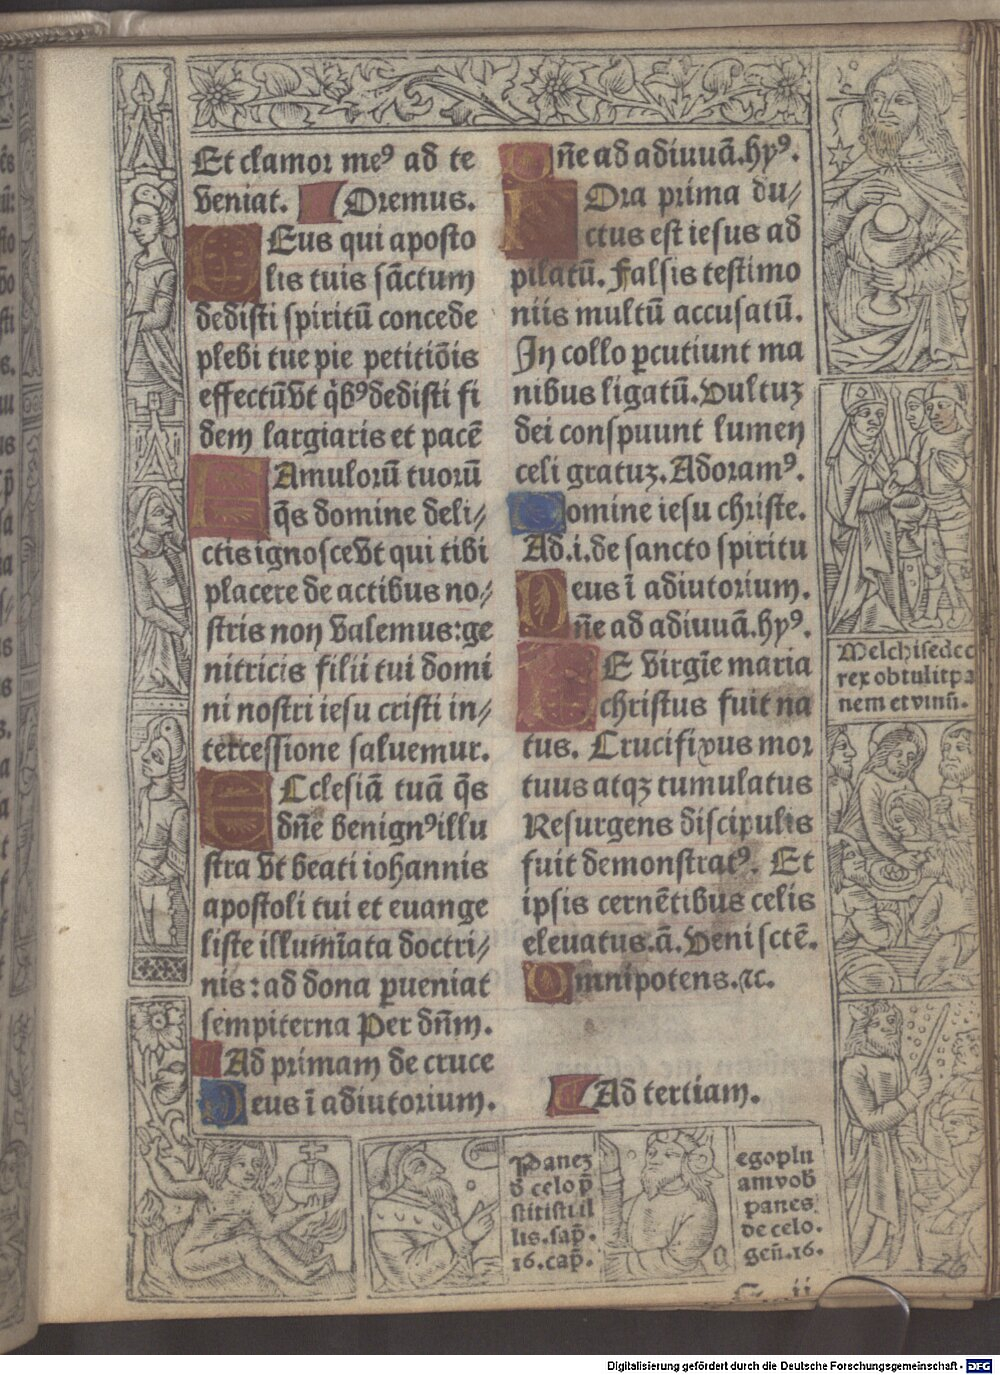 Et clamor meꝰ ad te
veniat. Oremus.
DEus qui aposto
lis tuis sãctum
dedisti spiritũ concede
plebi tue pie petitiõis
effectũ vt q̃bꝰ dedisti fi
dem largiaris et pacẽ
FAmulorũ tuorũ
q̃s domine deli⸗
ctis ignosce vt qui tibi
placere de actibus no⸗
stris non valemus: ge
nitricis filii tui domi
ni nostri iesu cristi in⸗
tercessione saluemur.
ECclesiã tuã q̃s
dñe benignꝰ illu
stra vt beati iohannis
apostoli tui et euange
liste illumĩata doctri⸗
nis: ad dona ꝑueniat
sempiterna Per dñm.
Ad primam de cruce
Deus ĩ adiutorium.
Dñe ad adiuuã. hyꝰ.
HOra prima du⸗
ctus est iesus ad
pilatũ. Falsis testimo
niis multũ accusatũ.
In collo ꝑcutiunt ma
nibus ligatũ. Vultuꝫ
dei conspuunt lumen
celi gratuꝫ. Adoramꝰ.
Domine iesu christe.
Ad .i. de sancto spiritu
Deus ĩ adiutorium.
Dñe ad adiuuã. hyꝰ.
DE virgĩe maria
christus fuit na
tus. Crucifixus mor
tuus atqꝫ tumulatus
Resurgens discipulis
fuit demonstratꝰ. Et
ipsis cernẽtibus celis
eleuatus. ã. Veni sctẽ.
Omnipotens. ⁊c.
Ad tertiam.
Melchisedec
rex obtulit pa
nem et vinũ.
Paneꝫ
d̃ celo p̃
stitisti il
lis. sap̃.
16. cap̃.
ego plu
am vob̃
panes
de celo.
geñ. 16.
26
Digitalisierung gefördert durch die Deutsche Forschungsgemeinschaft - DFG